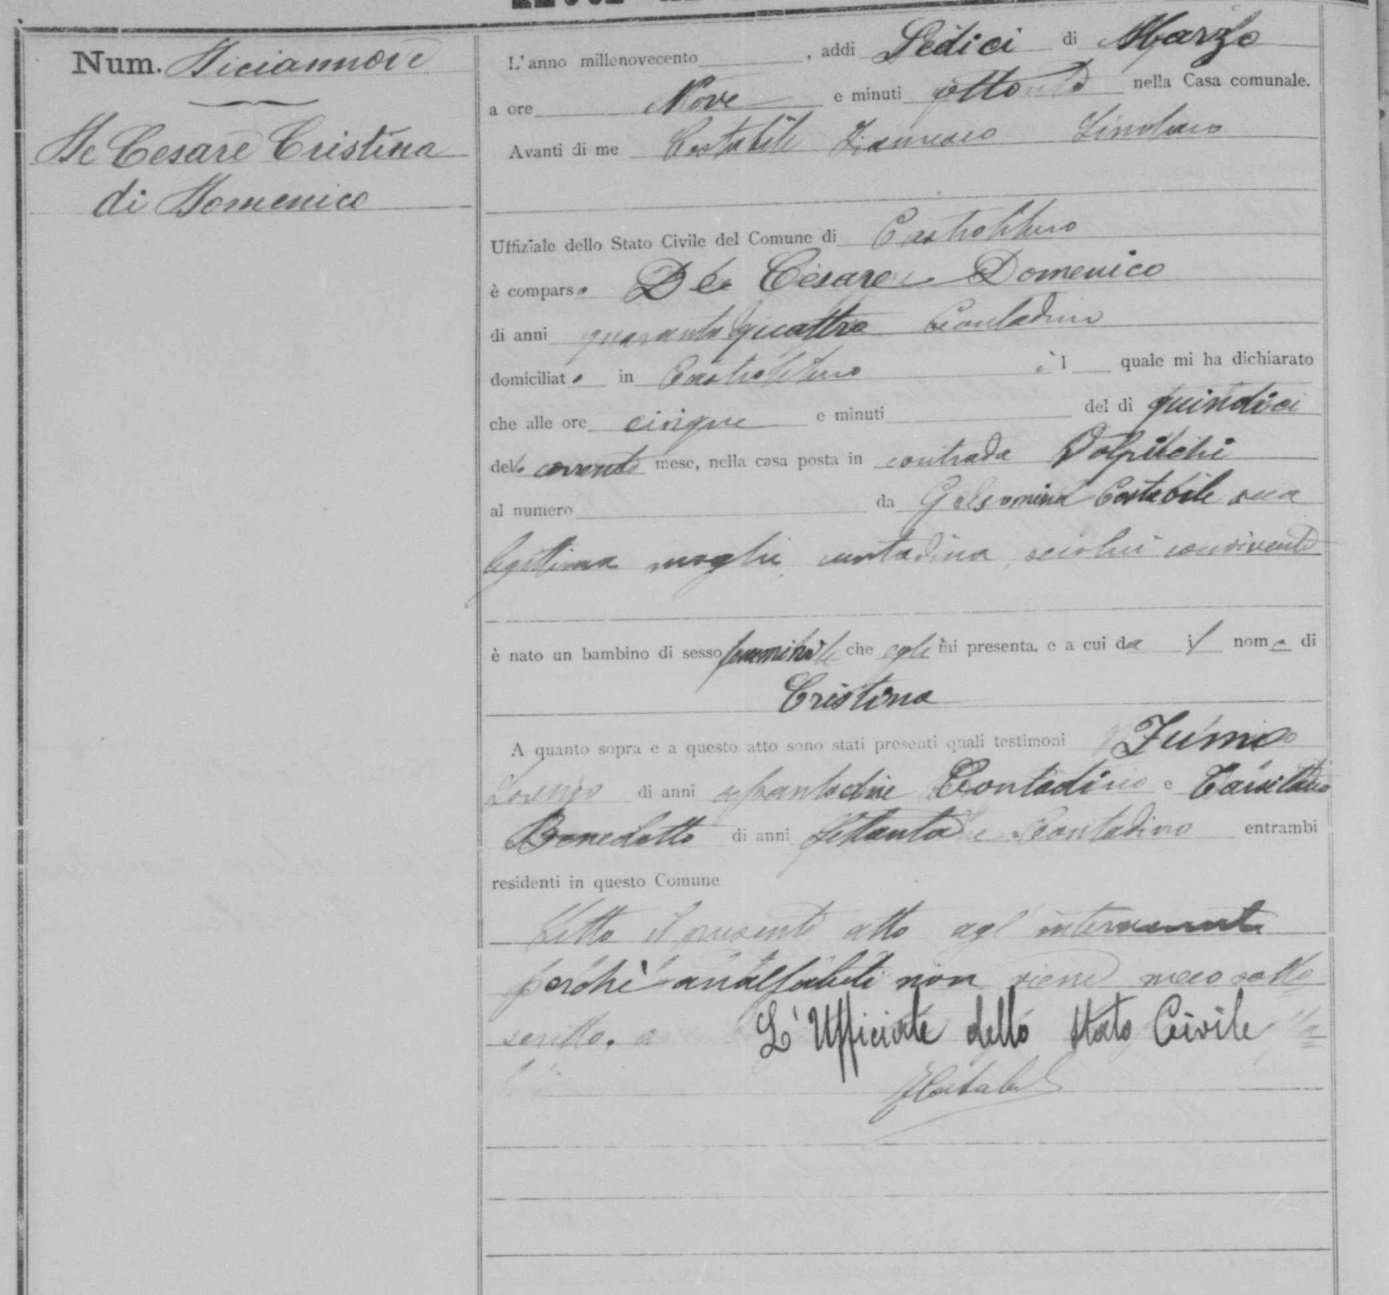 Num. Diciannove
De Cesare Cristina
di Domenico
L'anno millenovecento , addi Sedici di Marzo
a ore Nove e minuti nella Casa comunale.
Avanti di me Costabile Francesco Sindaco
Uffiziale dello Stato Civile del Comune di Castrolibero
è comparso De Cesare Domenico
di anni quarantaquattro Contadino
domiciliato in Castrolibero il quale mi ha dichiarato
che alle ore cinque e minuti del dì quindici
dello corrente mese, nella casa posta in contrada Volpilchi
al numero da Gelsomina Costabile sua
legittima moglie contadina, seco lui convivente
è nato un bambino di sesso femminile che egli mi presenta, e a cui da il nome di
Cristina
A quanto sopra e a questo atto sono stati presenti quali testimoni
Lorenzo di anni Contadino e
Benedetto di anni settanta Contadino entrambi
residenti in questo Comune
Letto il presente atto agl'intervenuti
perché analfabeti non viene meco sotto
scritto.
L'Ufficiale dello Stato Civile
FCostabile